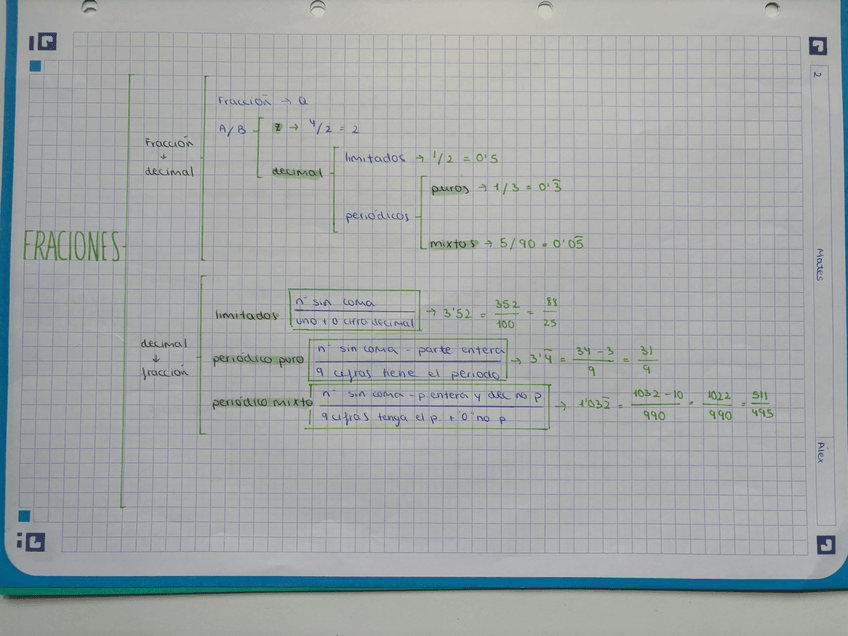 FRACIONES
Fracción
↓
decimal
Fracción → Q
A/B
Z → 4/2 = 2
decimal
limitados → 1/2 = 0'5
periódicos
puros → 1/3 = 0'3̅
mixtos → 5/90 = 0'05̅
decimal
↓
fracción
limitados
nº sin coma
uno + 0 cifra decimal
→ 3'52 = 352/100 = 88/25
periódico puro
nº sin coma - parte entera
9 cifras tiene el periodo
→ 3'4̅ = 34 - 3/9 = 31/9
periódico mixto
nº sin coma - p. entera y dec no p
9 cifras tenga el p + '0' no p
→ 1'032̅ = 1032 - 10/990 = 1022/990 = 511/495
2
Mates
Alex